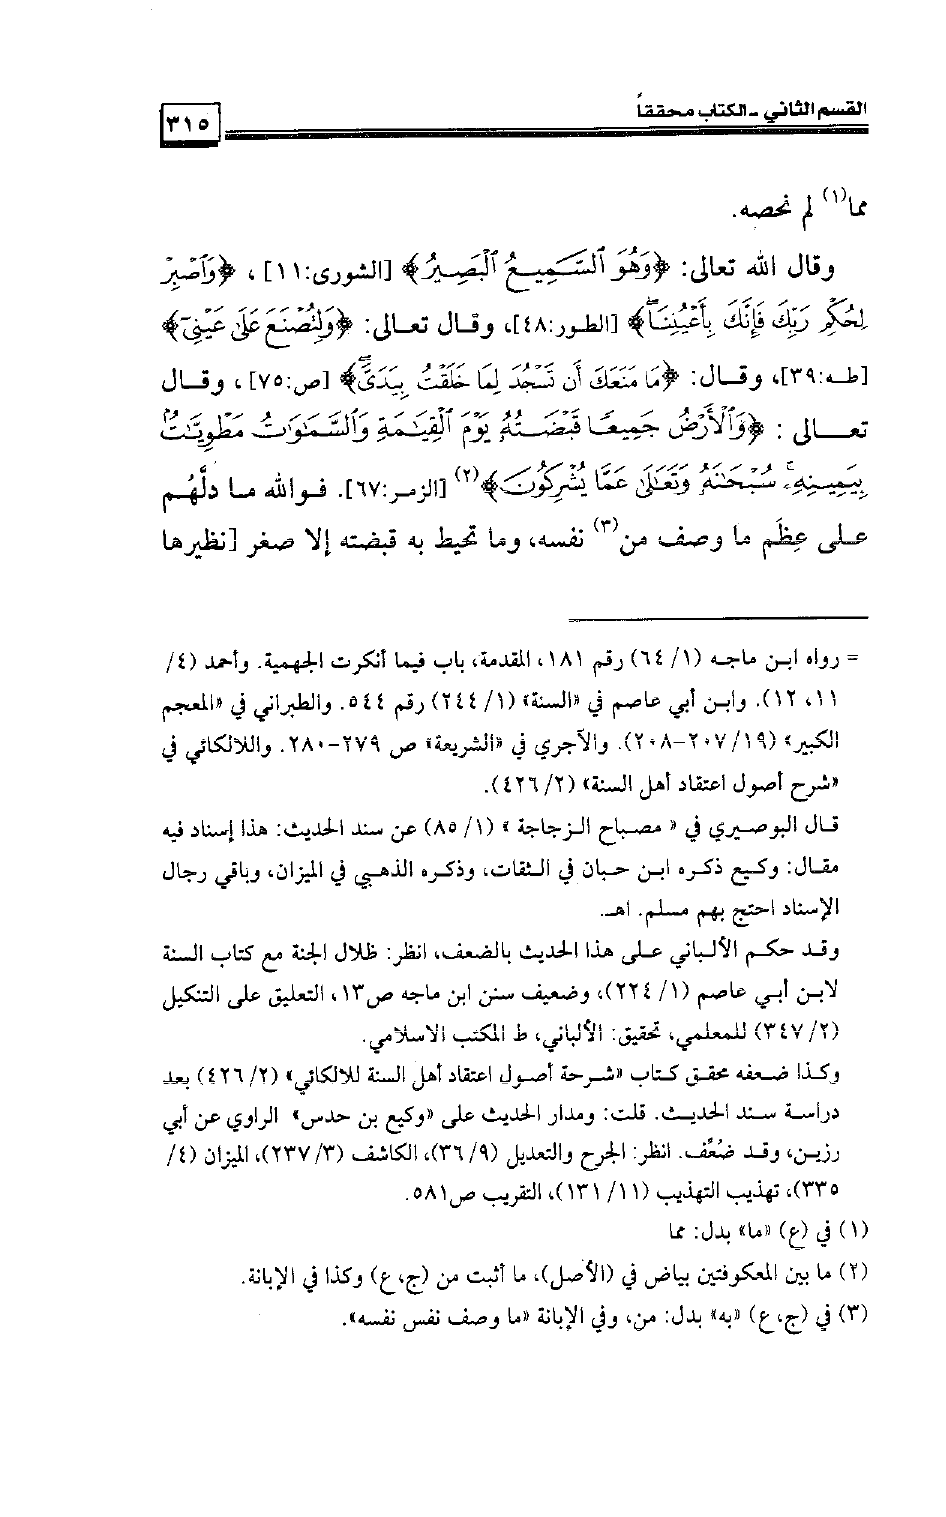 القسم الثاني - الكتاب محققاً
٣١٥
مما(١) لم نحصه.
وقال الله تعالى: ﴿وَهُوَ ٱلسَّمِيعُ ٱلْبَصِيرُ﴾ [الشورى:١١]، ﴿وَٱصْبِرْ
لِحُكْمِ رَبِّكَ فَإِنَّكَ بِأَعْيُنِنَا﴾ [الطور:٤٨]، وقال تعالى: ﴿وَلِتُصْنَعَ عَلَىٰ عَيْنِىٓ﴾
[طه:٣٩]، وقال: ﴿مَا مَنَعَكَ أَن تَسْجُدَ لِمَا خَلَقْتُ بِيَدَىَّ﴾ [ص:٧٥]، وقال
تعالى: ﴿وَٱلْأَرْضُ جَمِيعًا قَبْضَتُهُۥ يَوْمَ ٱلْقِيَٰمَةِ وَٱلسَّمَٰوَٰتُ مَطْوِيَّٰتٌۢ
بِيَمِينِهِۦ ۚ سُبْحَٰنَهُۥ وَتَعَٰلَىٰ عَمَّا يُشْرِكُونَ﴾(٢) [الزمر:٦٧]. فوالله ما دلَّهُم
على عِظَم ما وصف من(٣) نفسه، وما تحيط به قبضته إلا صغر [نظيرها
= رواه ابن ماجه (١/ ٦٤) رقم ١٨١، المقدمة، باب فيما أنكرت الجهمية. وأحمد (٤/
١١، ١٢). وابن أبي عاصم في «السنة» (١/ ٢٤٤) رقم ٥٤٤. والطبراني في «المعجم
الكبير» (١٩/ ٢٠٧-٢٠٨). والآجري في «الشريعة» ص ٢٧٩-٢٨٠. واللالكائي في
«شرح أصول اعتقاد أهل السنة» (٢/ ٤٢٦).
قال البوصيري في « مصباح الزجاجة » (١/ ٨٥) عن سند الحديث: هذا إسناد فيه
مقال: وكيع ذكره ابن حبان في الثقات، وذكره الذهبي في الميزان، وباقي رجال
الإسناد احتج بهم مسلم. اهـ.
وقد حكم الألباني على هذا الحديث بالضعف، انظر: ظلال الجنة مع كتاب السنة
لابن أبي عاصم (١/ ٢٢٤)، وضعيف سنن ابن ماجه ص١٣، التعليق على التنكيل
(٢/ ٣٤٧) للمعلمي، تحقيق: الألباني، ط المكتب الاسلامي.
وكذا ضعفه محقق كتاب «شرحة أصول اعتقاد أهل السنة للالكائي» (٢/ ٤٢٦) بعد
دراسة سند الحديث. قلت: ومدار الحديث على «وكيع بن حدس» الراوي عن أبي
رزين، وقد ضُعِّف. انظر: الجرح والتعديل (٩/ ٣٦)، الكاشف (٣/ ٢٣٧)، الميزان (٤/
٣٣٥)، تهذيب التهذيب (١١/ ١٣١)، التقريب ص٥٨١.
(١) في (ع) «ما» بدل: مما
(٢) ما بين المعكوفتين بياض في (الأصل)، ما أثبت من (ج، ع) وكذا في الإبانة.
(٣) في (ج، ع) «به» بدل: من، وفي الإبانة «ما وصف نفس نفسه».